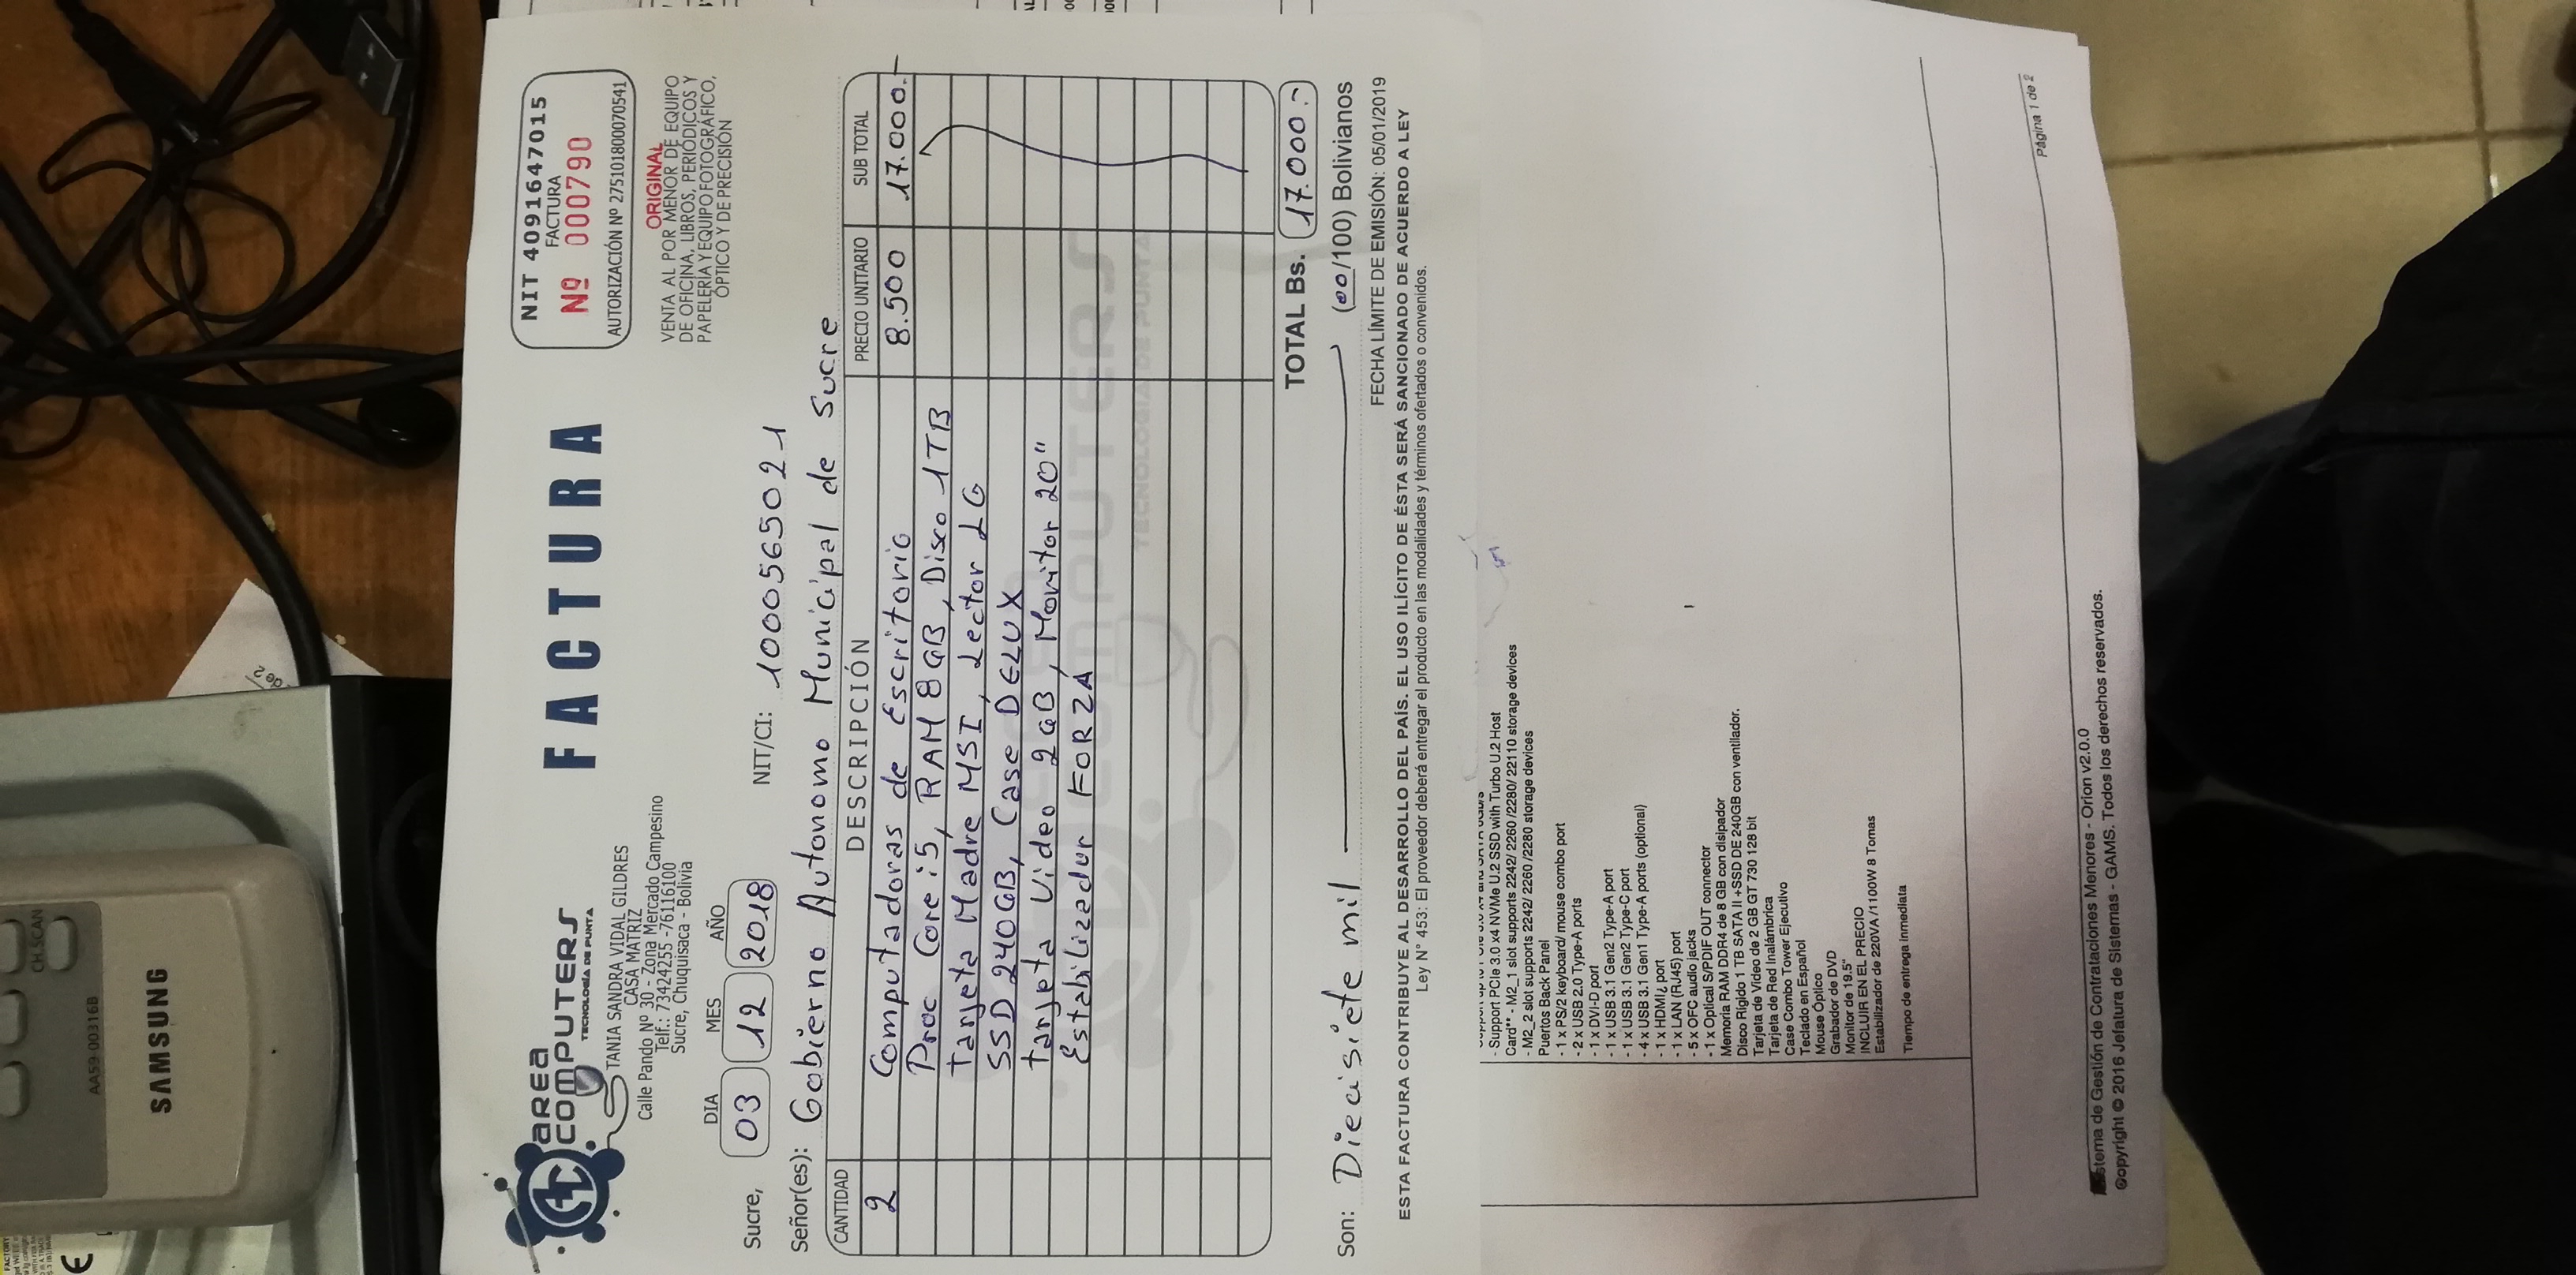 AREA
COMPUTERS
TECNOLOGÍA DE PUNTA
TANIA SANDRA VIDAL GILDRES
CASA MATRIZ
Calle Pando Nº 30 - Zona Mercado Campesino
Telf.: 73424255 -76116100
Sucre, Chuquisaca - Bolivia
FACTURA
NIT 4091647015
FACTURA
Nº 000790
AUTORIZACIÓN Nº 275101800070541
ORIGINAL
VENTA AL POR MENOR DE EQUIPO
DE OFICINA, LIBROS, PERIÓDICOS Y
PAPELERÍA Y EQUIPO FOTOGRÁFICO,
ÓPTICO Y DE PRECISIÓN
DIA MES AÑO
Sucre, 03 12 2018 NIT/CI: 1000565021
Señor(es): Gobierno Autonomo Municipal de Sucre
CANTIDAD DESCRIPCIÓN PRECIO UNITARIO SUB TOTAL
2 Computadoras de Escritorio 8.500 17.000.-
Proc Core i5, RAM 8GB, Disco 1TB
Tarjeta Madre MSI, Lector LG
SSD 240GB, Case DELUX
Tarjeta Video 2GB, Monitor 20"
Estabilizador FORZA
COMPUTERS
TECNOLOGÍA DE PUNTA
TOTAL Bs. 17.000.-
Son: Diecisiete mil (00/100) Bolivianos
FECHA LÍMITE DE EMISIÓN: 05/01/2019
ESTA FACTURA CONTRIBUYE AL DESARROLLO DEL PAÍS. EL USO ILÍCITO DE ÉSTA SERÁ SANCIONADO DE ACUERDO A LEY
Ley N° 453: El proveedor deberá entregar el producto en las modalidades y términos ofertados o convenidos.
- Support PCIe 3.0 x4 NVMe U.2 SSD with Turbo U.2 Host
Card** - M2_1 slot supports 2242/ 2260 /2280/ 22110 storage devices
- M2_2 slot supports 2242/ 2260 /2280 storage devices
Puertos Back Panel
- 1 x PS/2 keyboard/ mouse combo port
- 2 x USB 2.0 Type-A ports
- 1 x DVI-D port
- 1 x USB 3.1 Gen2 Type-A port
- 1 x USB 3.1 Gen2 Type-C port
- 4 x USB 3.1 Gen1 Type-A ports (optional)
- 1 x HDMI¿ port
- 1 x LAN (RJ45) port
- 5 x OFC audio jacks
- 1 x Optical S/PDIF OUT connector
Memoria RAM DDR4 de 8 GB con disipador
Disco Rigido 1 TB SATA II +SSD DE 240GB con ventilador.
Tarjeta de Video de 2 GB GT 730 128 bit
Tarjeta de Red Inalámbrica
Case Combo Tower Ejecutivo
Teclado en Español
Mouse Óptico
Grabador de DVD
Monitor de 19.5"
INCLUIR EN EL PRECIO
Estabilizador de 220VA /1100W 8 Tomas
Tiempo de entrega inmediata
Página 1 de 2
Sistema de Gestión de Contrataciones Menores - Orion v2.0.0
Copyright © 2016 Jefatura de Sistemas - GAMS. Todos los derechos reservados.
CH.SCAN
AA59-00316B
SAMSUNG
de 2